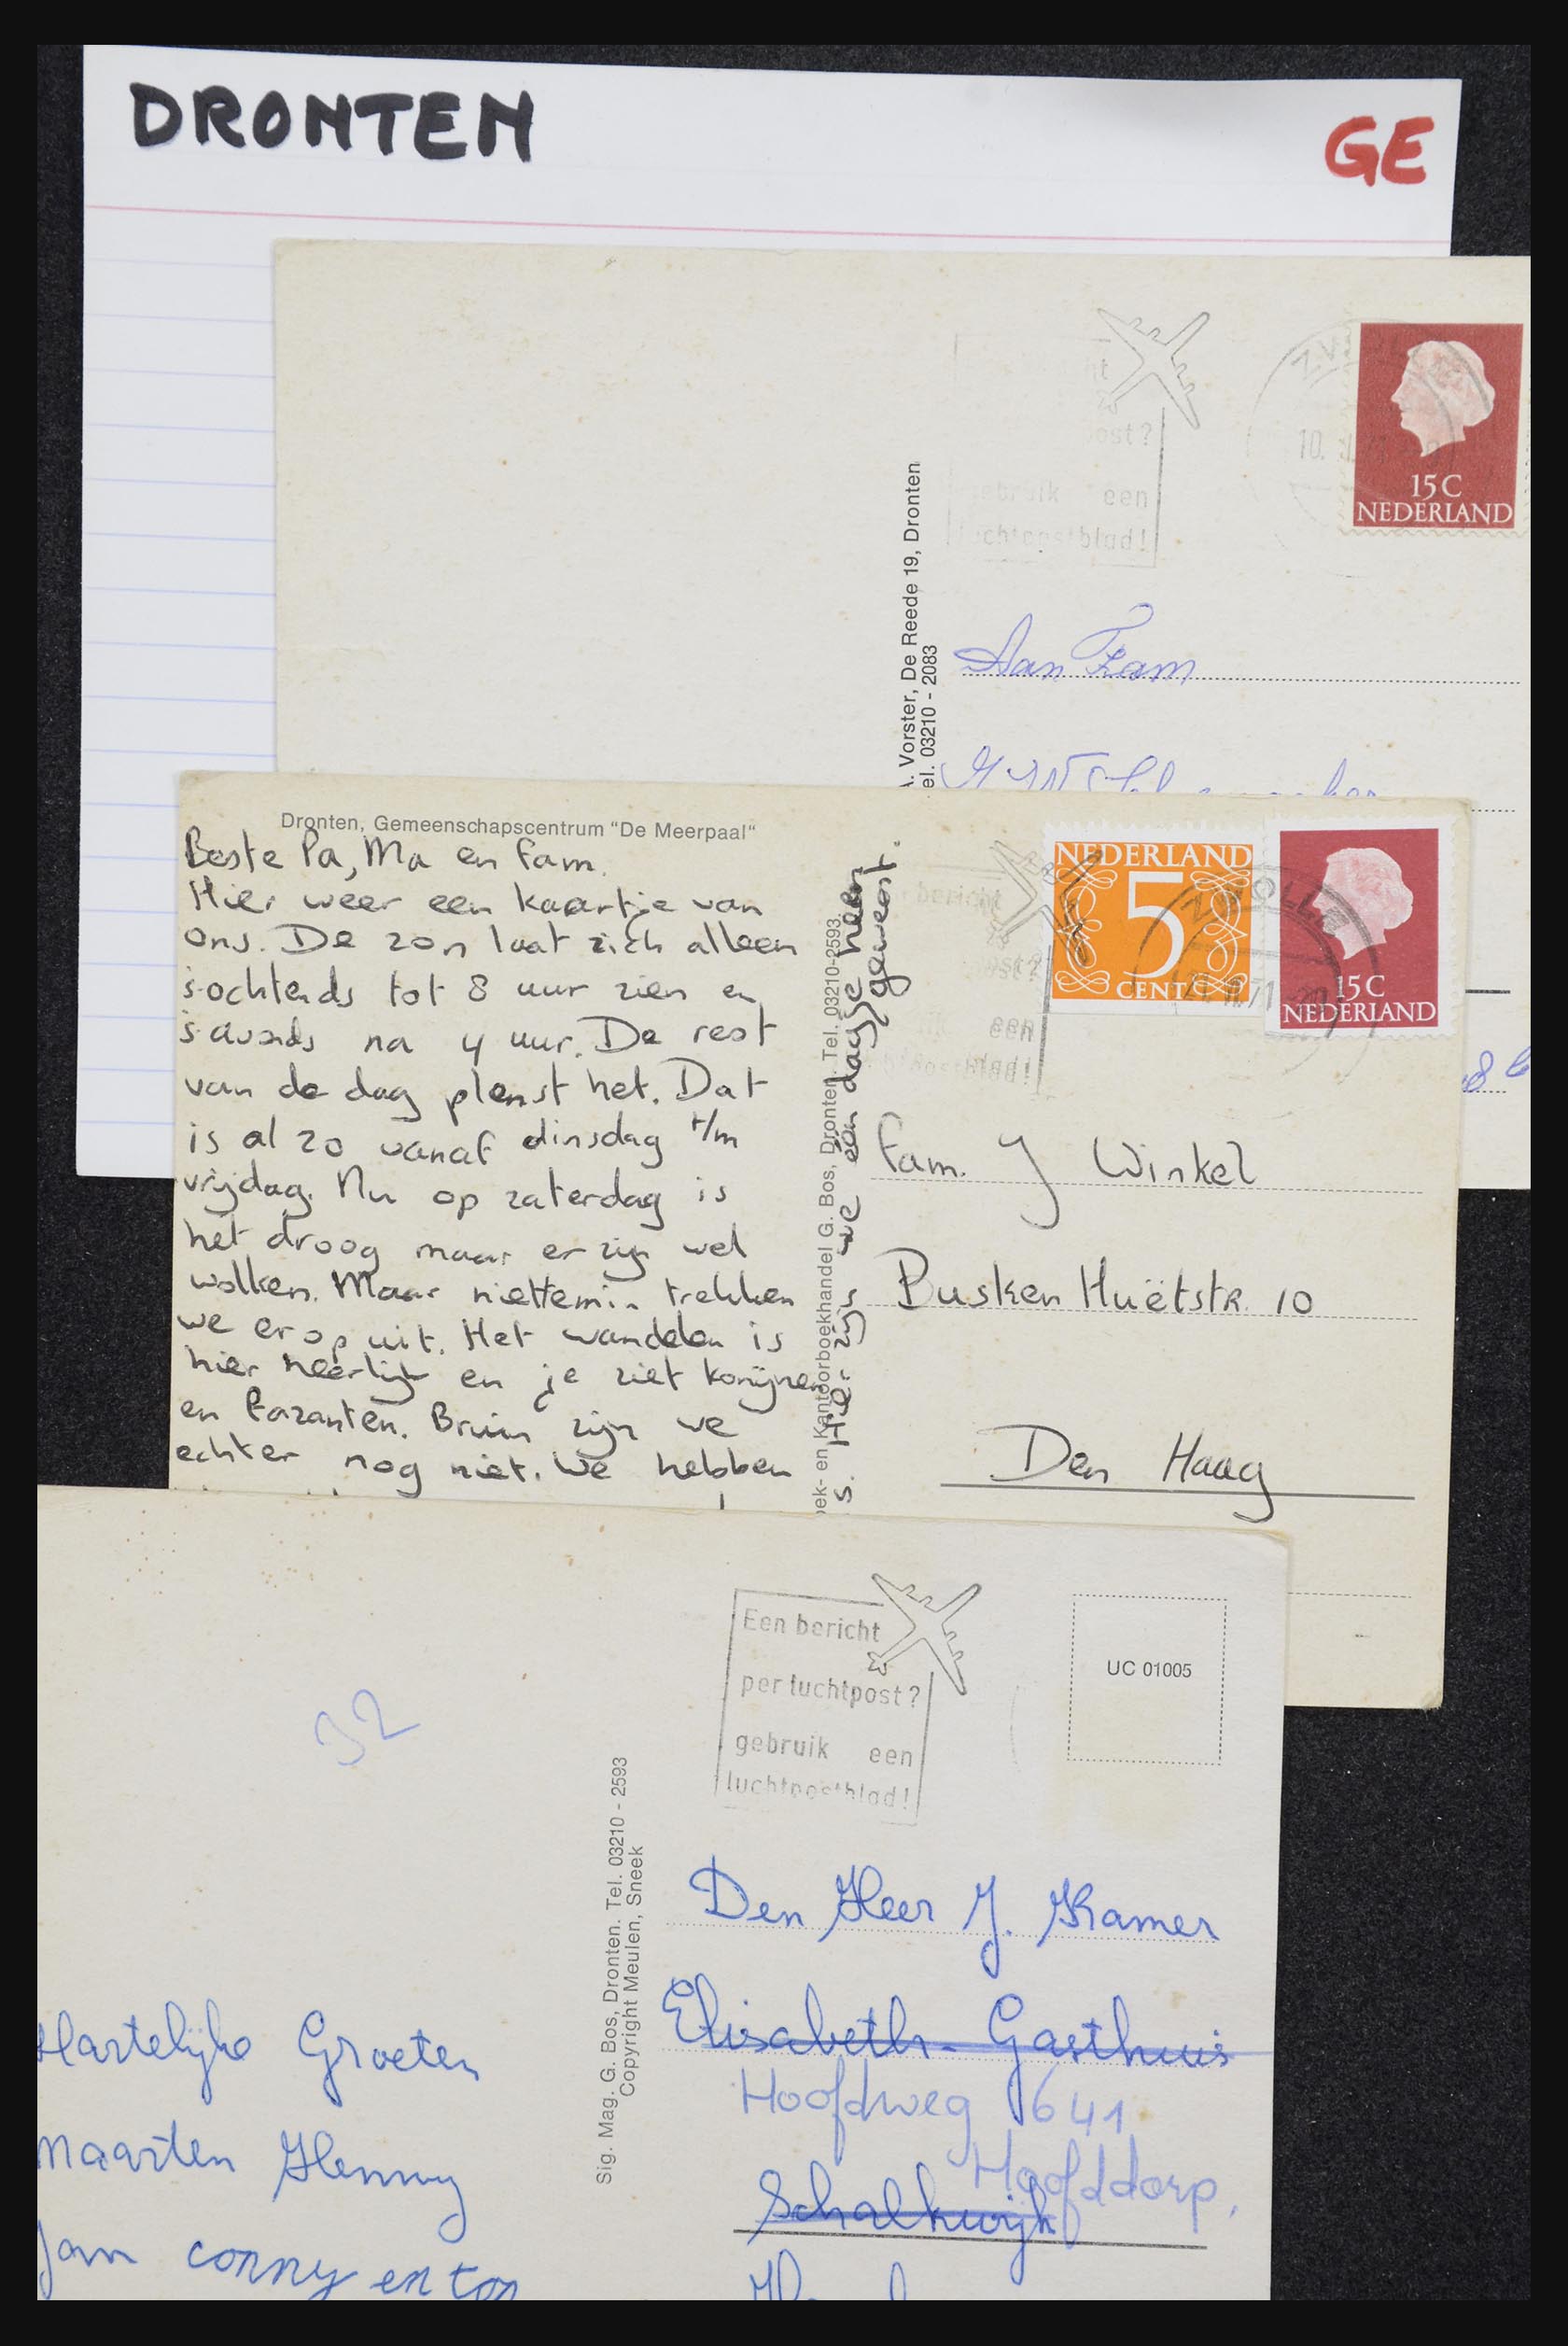 DRONTEN
GE
ost?
gebruik een
luchtpostblad!
15 C
NEDERLAND
A. Vorster, De Reede 19, Dronten
el. 03210 - 2083
Aan Fam
Dronten, Gemeenschapscentrum "De Meerpaal"
Beste Pa, Ma en Fam.
Hier weer een kaartje van
ons. De zon laat zich alleen
's-ochtends tot 8 uur zien en
's avonds na 4 uur. De rest
van de dag plenst het. Dat
is al zo vanaf dinsdag t/m
vrijdag. Nu op zaterdag is
het droog maar er zijn wel
wolken. Maar niettemin trekken
we er op uit. Het wandelen is
hier heerlijk en je ziet konijnen
en Fazanten. Bruin zijn we
echter nog niet. We hebben
oek- en Kantoorboekhandel G. Bos, Dronten. Tel. 03210-2593.
s. Hier zijn we één dagje heen
geweest.
bericht
ost?
een
blad!
NEDERLAND
5
CENT
ZWOLLE
15 C
NEDERLAND
Fam. J Winkel
Busken Huëtstr. 10
Den Haag
Een bericht
per luchtpost?
gebruik een
luchtpostblad!
UC 01005
32
Sig. Mag. G. Bos, Dronten. Tel. 03210 - 2593
Copyright Meulen, Sneek
Den Heer J. Kramer
Elisabeth-Gasthuis
Hoofdweg 641
Hoofddorp.
Schalkwijk
Hartelijke Groeten
Maarten Henny
Jan conny en ton